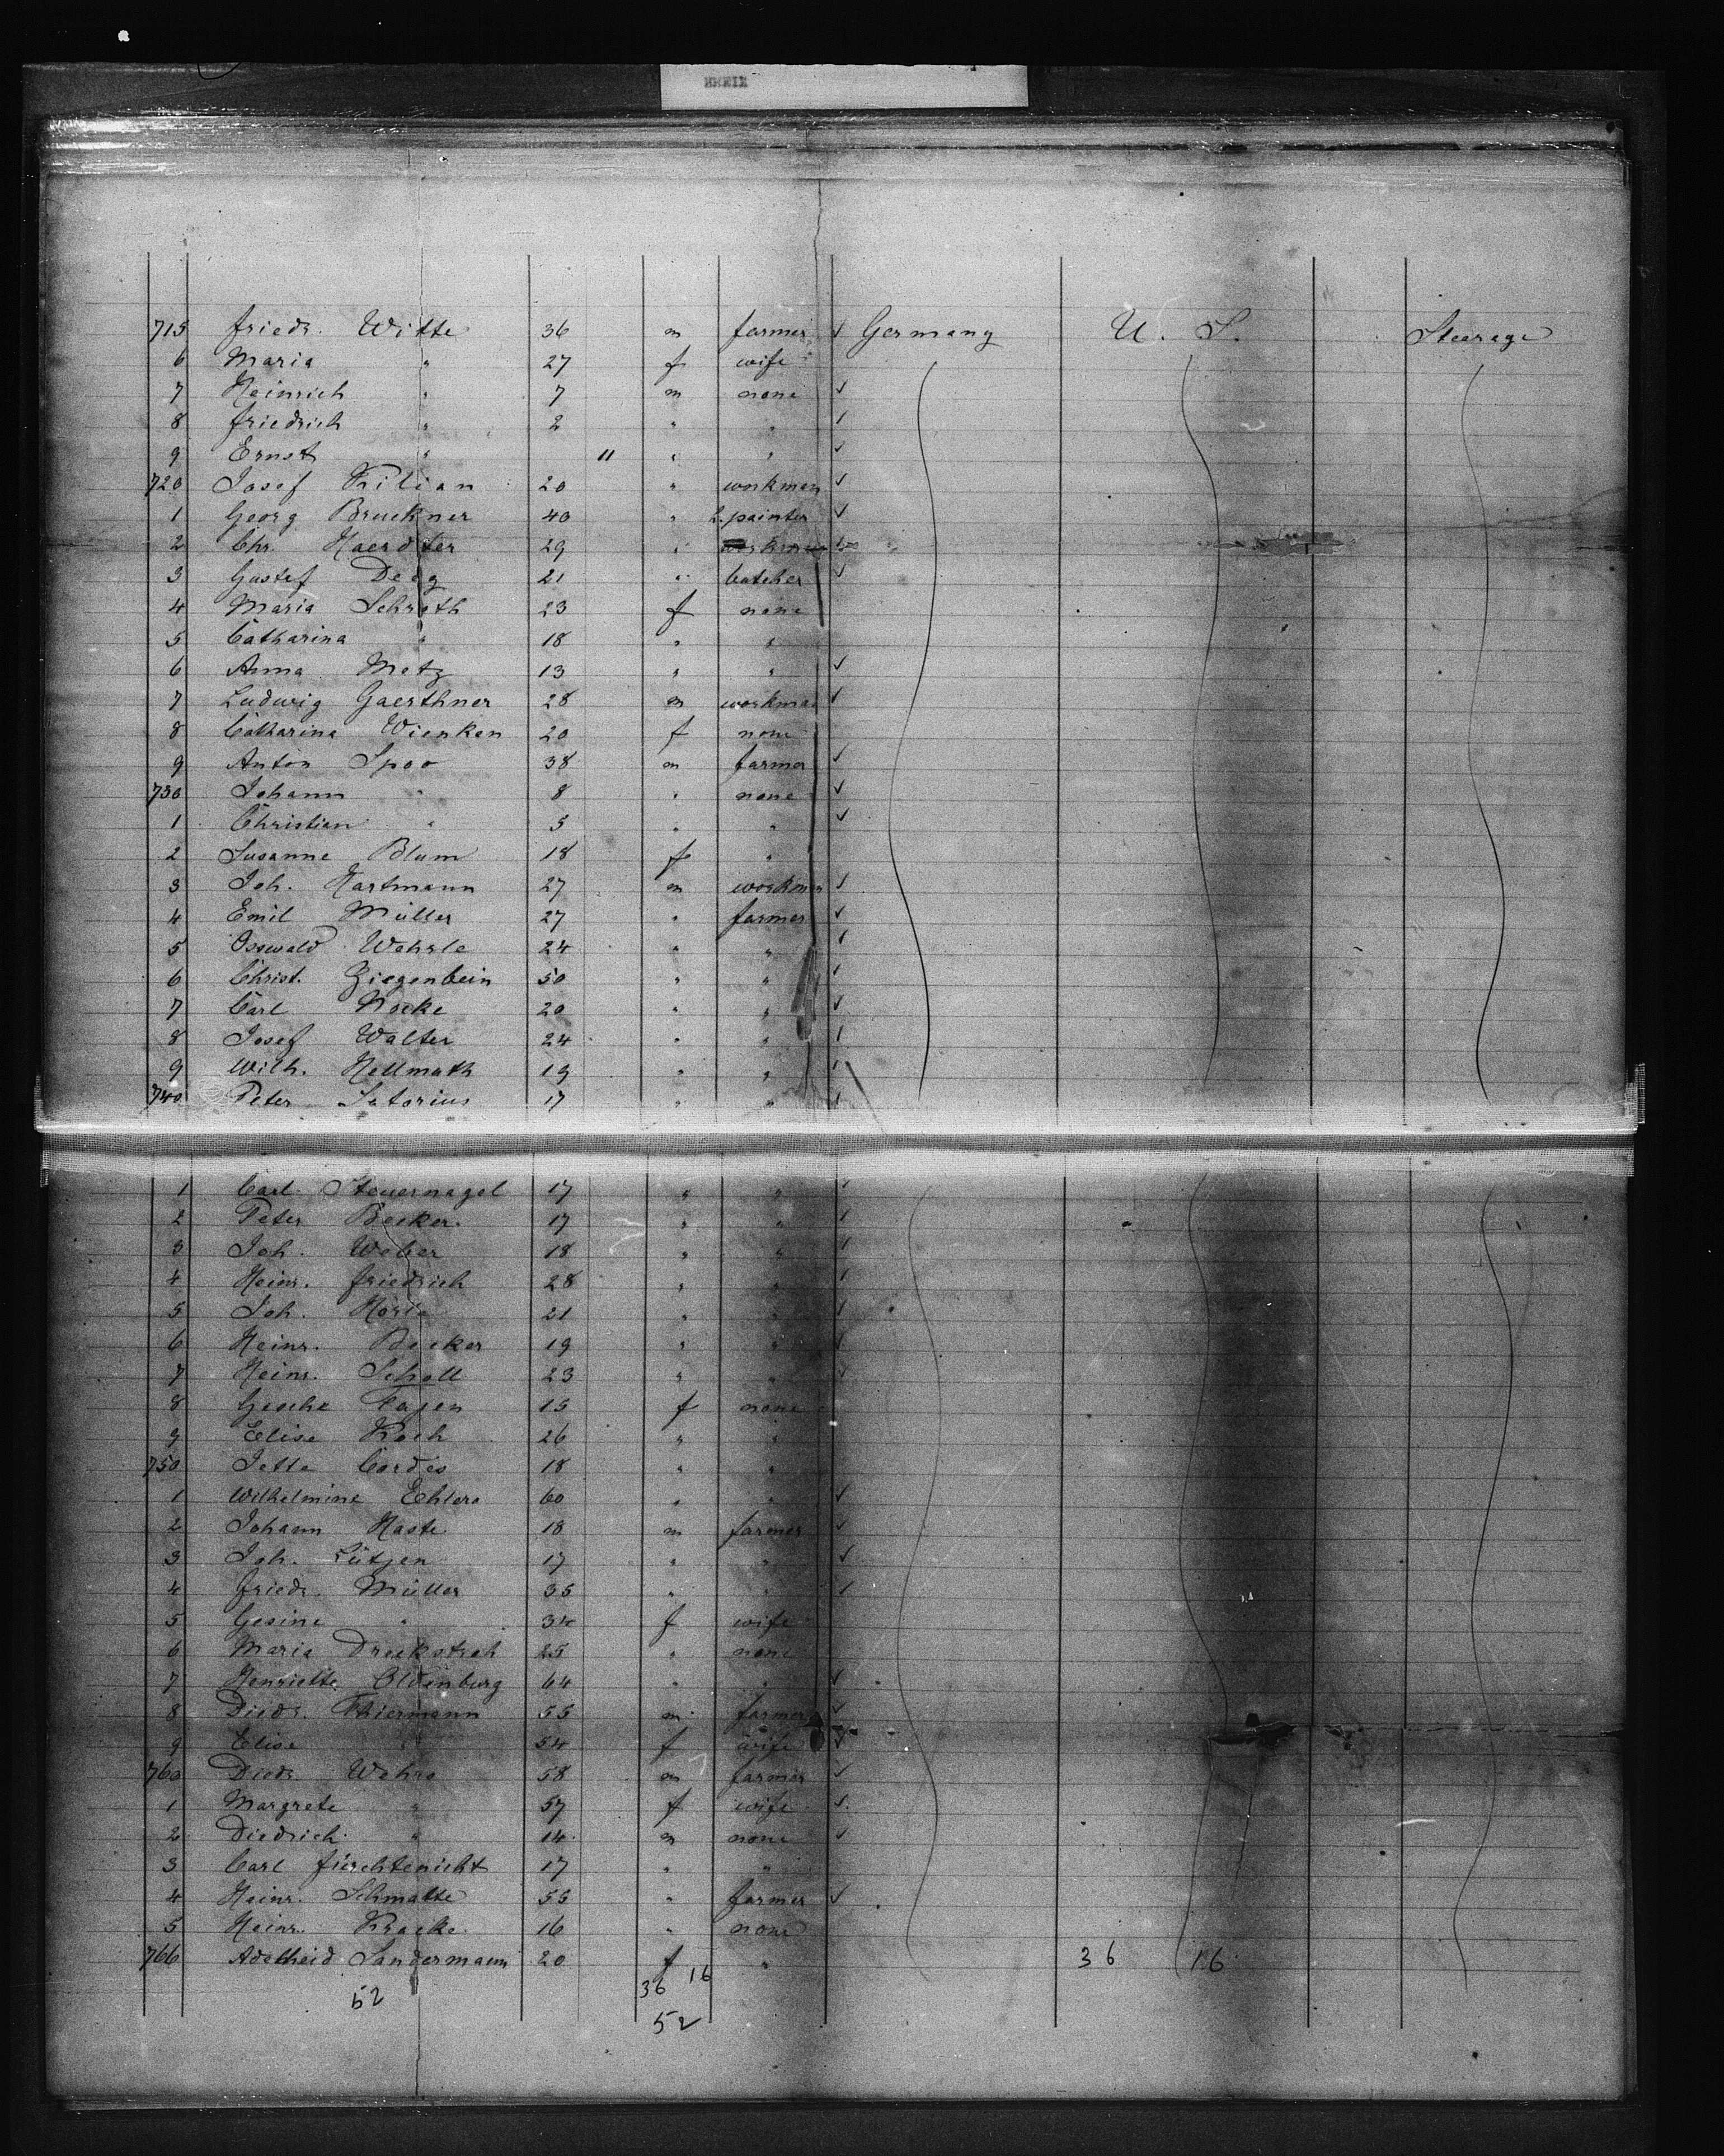 715 Friedr. Witte 36 m farmer ✓ Germany U. S. Steerage
6 Maria " 27 f wife
7 Heinrich " 7 m none ✓
8 Friedrich " 2 " " ✓
9 Ernst " 11 " " ✓
720 Josef Kilian 20 " workman ✓
1 Georg Bruckner 40 " painter ✓
2 Chr. Haerdter 29 "
3 Gustef Deeg 21 " butcher ✓
4 Maria Schroth 23 f none
5 Catharina " 18 " "
6 Anna Metz 13 " " ✓
7 Ludwig Gaerthner 28 m workman ✓
8 Catharina Wienken 20 f none
9 Anton Spoo 38 m farmer ✓
730 Johann " 8 " none ✓
1 Christian " 5 " " ✓
2 Susanne Blum 18 f "
3 Joh. Hartmann 27 m workman ✓
4 Emil Müller 27 " farmer ✓
5 Osswald Wehrle 24 " " ✓
6 Christ. Ziegenbein 50 " " ✓
7 Carl Nocke 20 " " ✓
8 Josef Walter 24 " " ✓
9 Wilh. Hellmuth 19 " " ✓
740 Peter Satorius 17 " " ✓
1 Carl Steuernagel 17 " " ✓
2 Peter Becker 17 " " ✓
3 Joh. Weber 18 " " ✓
4 Heinr. Friedrich 28 " " ✓
5 Joh. 21 " " ✓
6 Heinr. Becker 19 " " ✓
7 Heinr. Scholl 23 " " ✓
8 Gesche Fajen 15 f none
9 Elise Koch 26 " "
750 Jette Cordes 18 " "
1 Wilhelmine Ehlers 60 " " ✓
2 Johann Haste 18 m farmer ✓
3 Joh. Lütjen 17 " " ✓
4 Friedr. Müller 35 " " ✓
5 Gesine " 34 f wife
6 Maria 25 " none
7 Henriette Oldenburg 64 " " ✓
8 Diedr. Thiermann 55 m farmer ✓
9 Elise " 54 f wife ✓
760 Diedr. Wehrs 58 m farmer ✓
1 Margrete " 57 f wife ✓
2 Diedrich " 14 m none ✓
3 Carl Fürchtenicht 17 " "
4 Heinr. Schmatte 55 " farmer ✓
5 Heinr. Kracke 16 " none
766 Adelheid Sandermann 20 f " 36 16
36 16
52
52